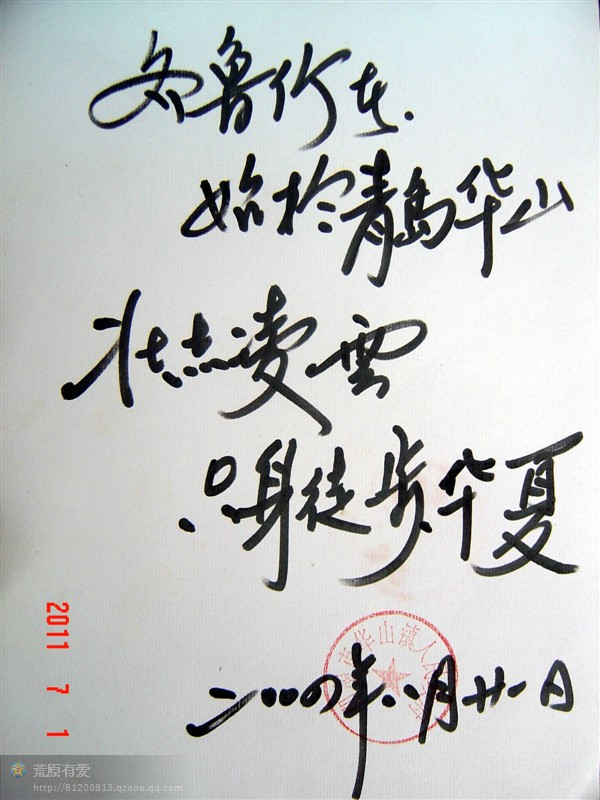 齐鲁行走.
始於青岛华山
壮志凌雲
只身徒步华夏
二〇〇四年八月廿一日
市华山镇人民
2011 7 1
荒原有爱
http://81200813.qzone.qq.com